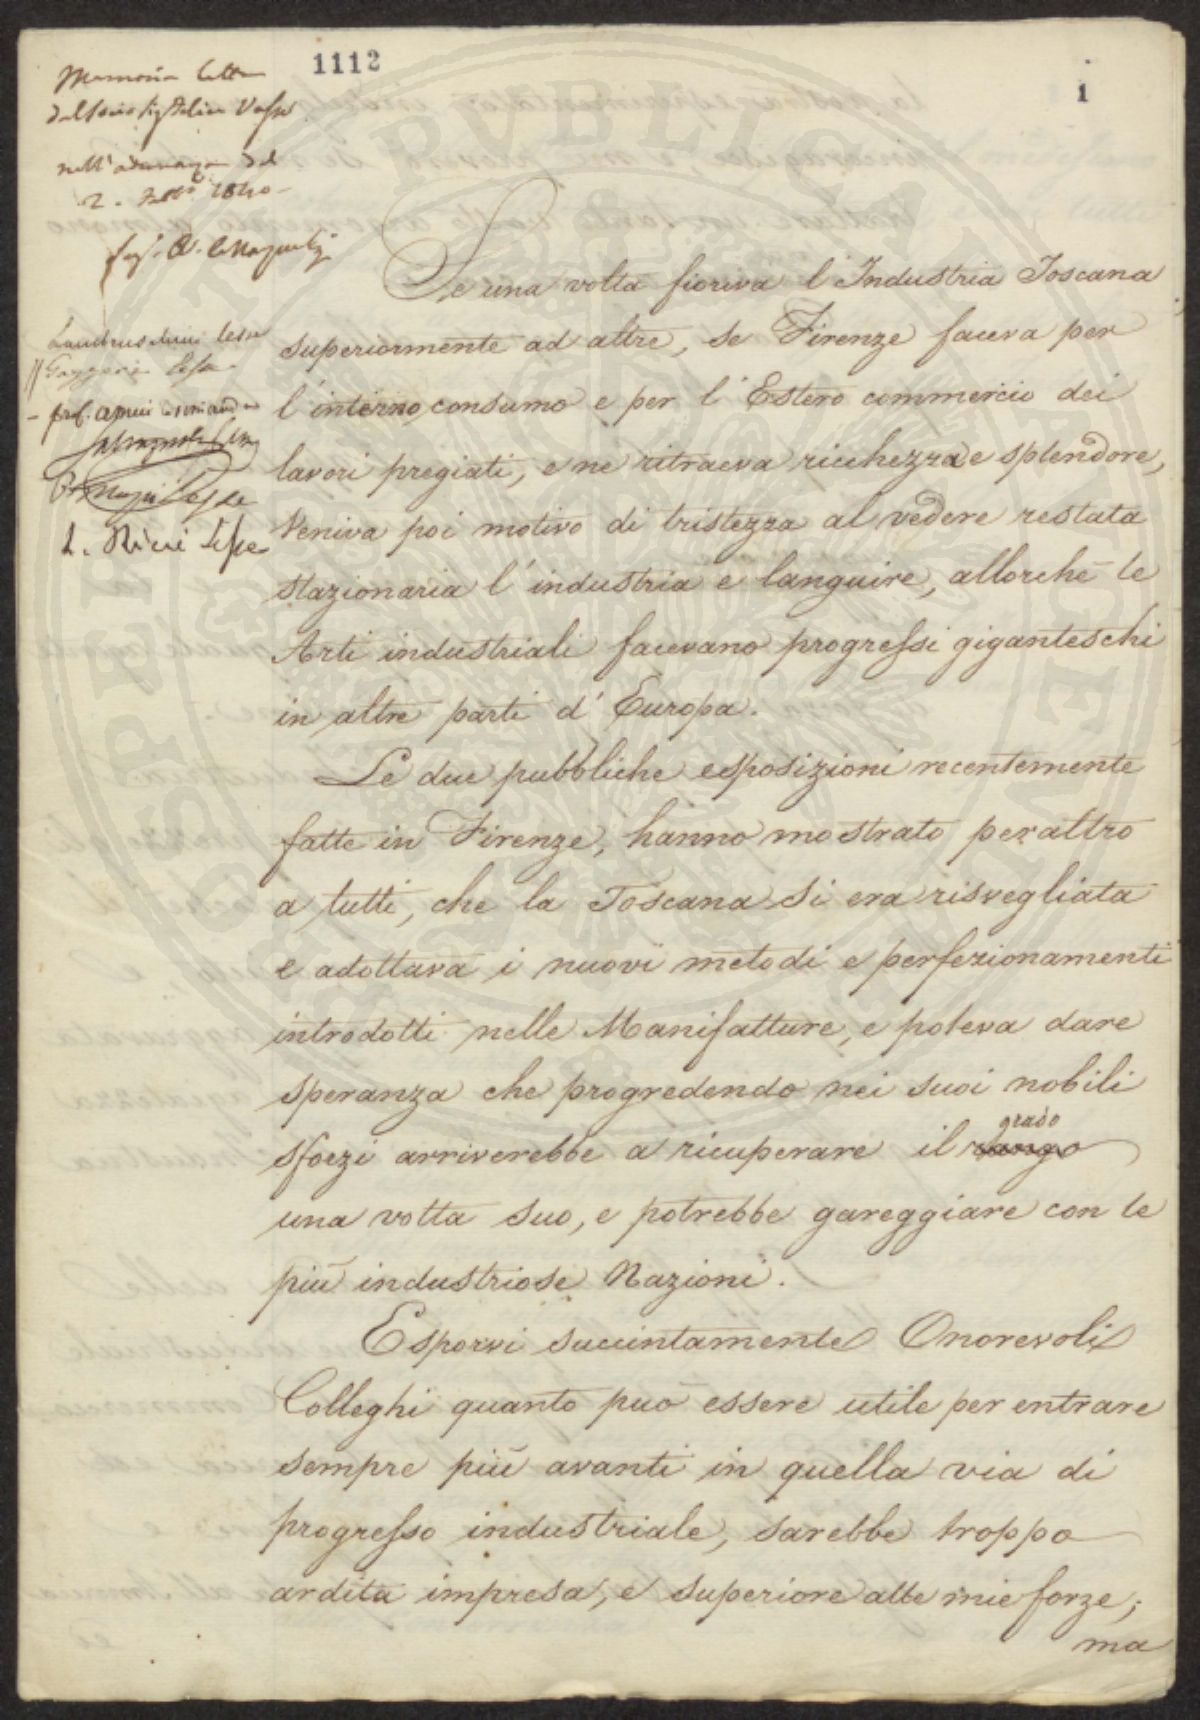 1112
1
Memoria letta
dal Socio Sig.
nell'adunanza del
2. 1840
Se una volta fioriva l'Industria Toscana
superiormente ad altre, se Firenze faceva per
l'interno consumo e per l'Estero commercio dei
lavori pregiati, e ne ritraeva ricchezza e splendore,
Veniva poi motivo di tristezza al vedere restata
stazionaria l'industria e languire, allorchè le
Arti industriali facevano progressi giganteschi
in altre parti d'Europa.
Le due pubbliche esposizioni recentemente
fatte in Firenze, hanno mostrato per altro
a tutti, che la Toscana si era risvegliata
e adottava i nuovi metodi e perfezionamenti
introdotti nelle Manifatture, e poteva dare
speranza che progredendo nei suoi nobili
grado
sforzi arriverebbe a ricuperare il rango
una volta suo, e potrebbe gareggiare con le
più industriose Nazioni.
Esporvi succintamente Onorevoli
Colleghi quanto può essere utile per entrare
sempre più avanti in quella via di
progresso industriale, sarebbe troppo
ardita impresa, e superiore alle mie forze;
ma
Lambruschini lesse
prof. Amici
L. Ricci Lesse